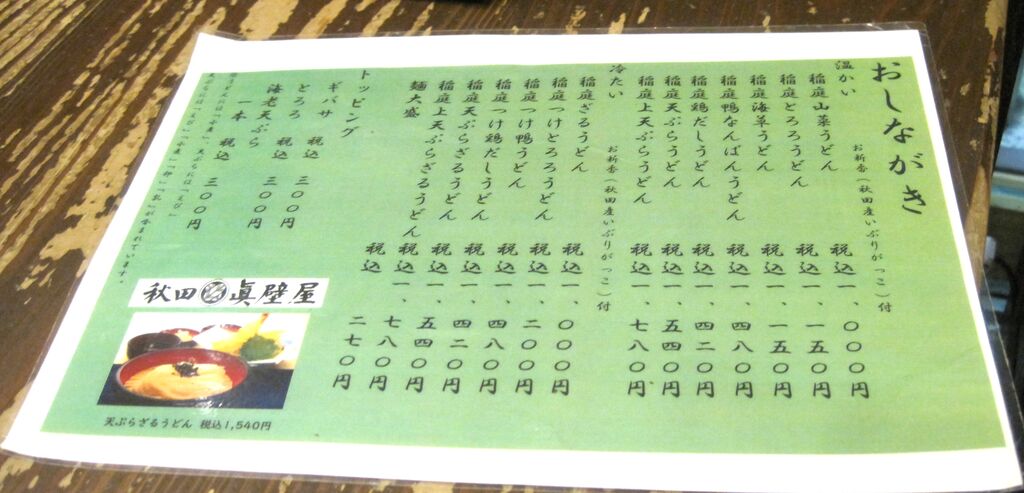 おしながき
温かい お新香(秋田産いぶりがっこ)付
稲庭山菜うどん 税込一、〇〇〇円
稲庭とろろうどん 税込一、一五〇円
稲庭海草うどん 税込一、一五〇円
稲庭鴨なんばんうどん 税込一、四八〇円
稲庭鶏だしうどん 税込一、四二〇円
稲庭天ぷらうどん 税込一、五四〇円
稲庭上天ぷらうどん 税込一、七八〇円
冷たい お新香(秋田産いぶりがっこ)付
稲庭ざるうどん 税込一、〇〇〇円
稲庭つけとろろうどん 税込一、二〇〇円
稲庭つけ鴨うどん 税込一、四八〇円
稲庭つけ鶏だしうどん 税込一、四二〇円
稲庭天ぷらざるうどん 税込一、五四〇円
稲庭上天ぷらざるうどん 税込一、七八〇円
麺大盛 税込 二七〇円
トッピング
ギバサ 税込 三〇〇円
とろろ 税込 三〇〇円
海老天ぷら
一本 税込 三〇〇円
が含まれています。
秋田 眞壁屋
天ぷらざるうどん 税込1,540円